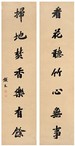 看花种竹心無事
掃地焚香樂有餘